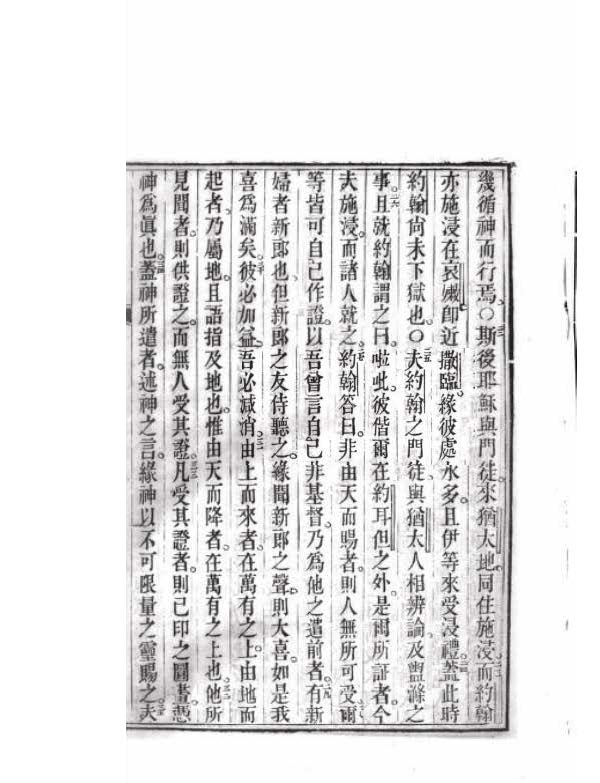 幾循神而行焉。○斯後耶穌與門徒來猶太地。同住施浸。而約翰
亦施浸在哀嫩卽近撒臨。緣彼處水多。且伊等來受浸禮。蓋此時
約翰尚未下獄也。○夫約翰之門徒、與猶太人相辨論、及盥滌之
事。且就約翰謂之曰。啦吡。彼偕爾在約耳但之外。是爾所証者。今
夫施浸。而諸人就之。約翰答曰。非由天而賜者。則人無所可受。爾
等皆可自己作證。以吾曾言自己非基督。乃為他之遣前者。有新
婦者新郎也、但新郎之友侍聽之。緣聞新郎之聲、則大喜。如是我
喜為滿矣。彼必加益。吾必減消。由上而來者。在萬有之上。由地而
起者、乃屬地。且語指及地也。惟由天而降者。在萬有之上也。他所
見聞者。則供證之。而無人受其證。凡受其證者。則已印之圖書。憑
神為眞也。蓋神所遣者。述神之言。緣神以不可限量之靈賜之。夫